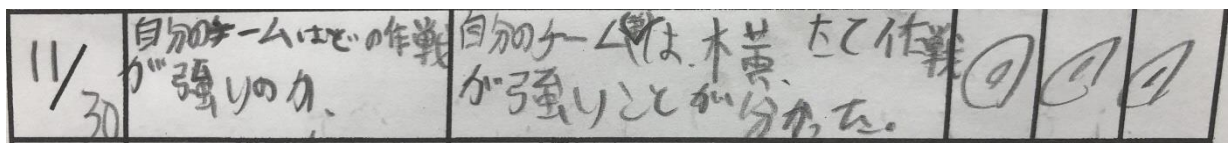 11/30
自分のチームはどの作戦
が強いのか、
自分のチームは、横、たて作戦
が強いことが分かった。
◎ ◎ ◎